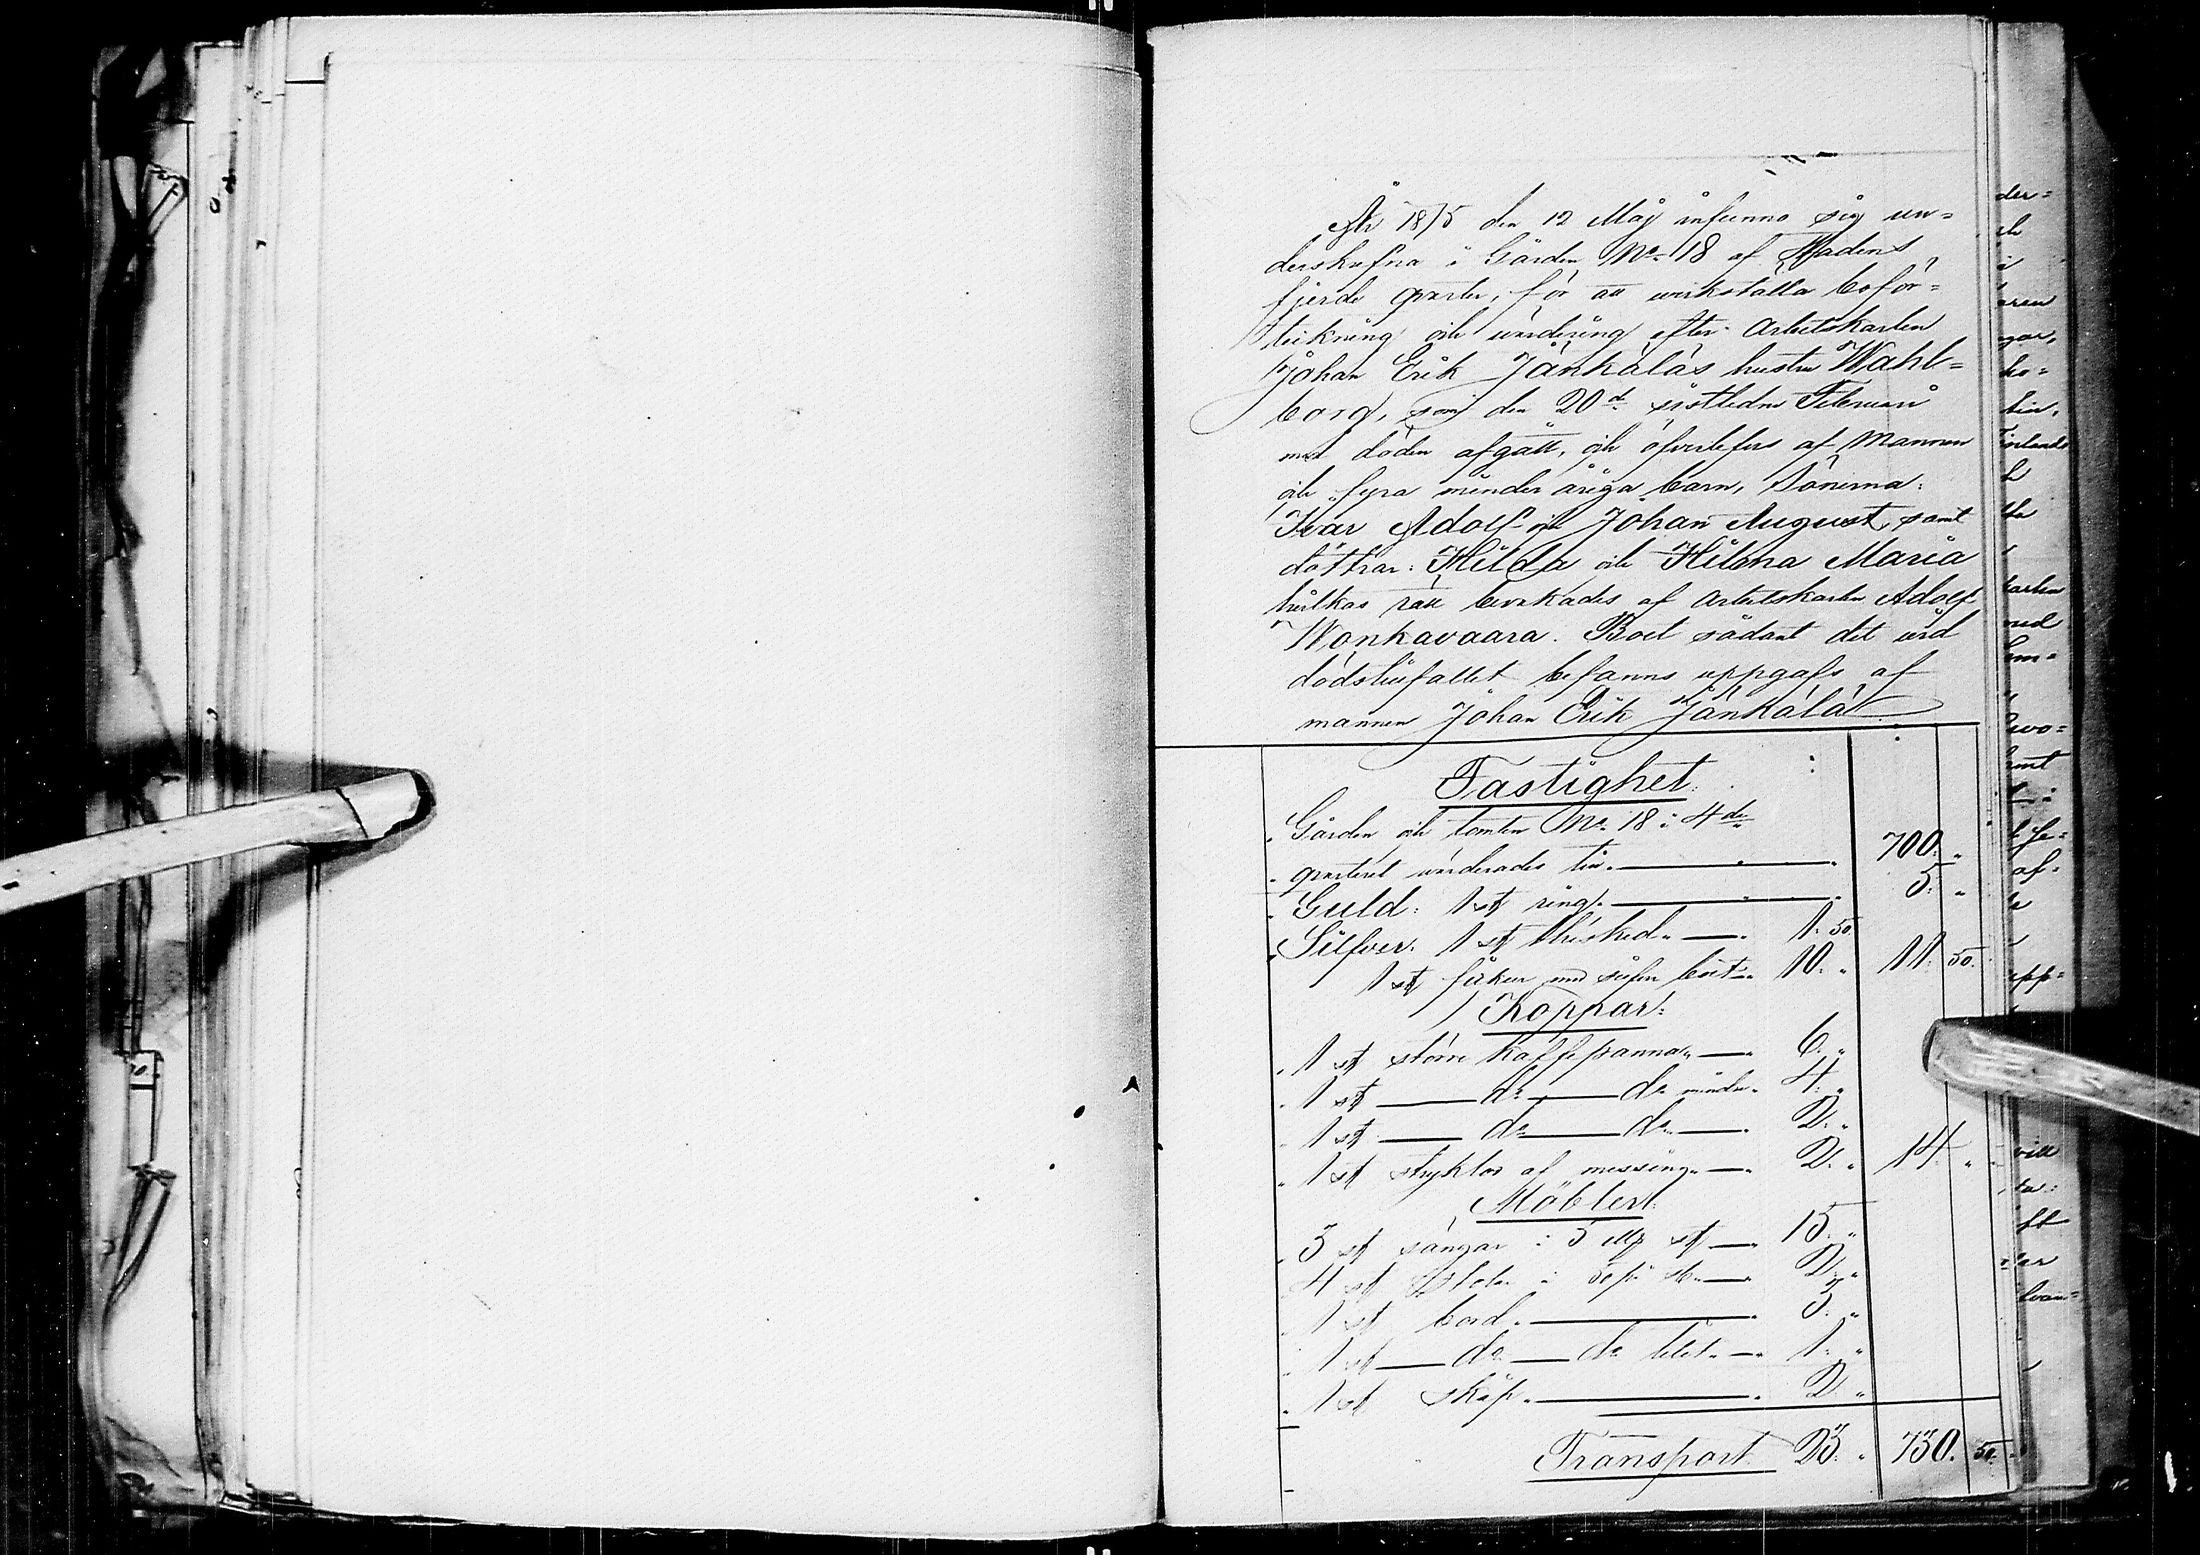 År 1875 den 12 Maj infunno sig un=
derskrifna i Gården No 18 af Stadens
fjerde qvarter, för att werkställa boför=
teckning och wärdering efter Arbetskarlen
Johan Erik Jänkäläs hustru Wahl=
borg, som den 20de sistledne Februari
med döden afgått, och öfverlefves af Mannen
och fyra minderåriga barn, Sönerna:
Ivar Adolf och Johan August, samt
döttrar: Hilda och Hilena Maria
hvilkas rätt bevakades af Arbetskarlen Adolf
Wonkavaara. Boet sådant det wid
dödstimfallet befanns uppgafs af
mannen Johan Erik Jänkälä
Fastighet:
Gården och tomten No 18 i 4de
qvarteret värderades till 700. "
Guld: 1 st ring 5. "
Silfver: 1 st thésked 1. 50
1 st med silfver 10. " 11. 50.
Koppar:
1 st större kaffepanna 6. "
1 st do do mindre 4. "
1 st do do 2. "
1 st af messing 2. " 14. "
Möbler:
3 st sängar i 5 st 15. "
4 st Stolar i 50 pi st 2. "
1 st bord 3. "
1 st do do litet 1. "
1 st skåp 2. "
Transport 23. " 730. 50.
der=
ho=
Finlands
karlen
samt
af=
upp=